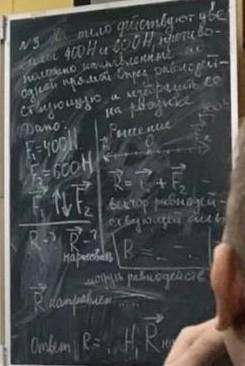 №3. На тело действуют две
силы 400Н и 600Н, противо-
положно направленные по
одной прямой. Опред. равнодей-
ствующую и
на рисунке
Дано:
F₁=400Н
F₂=600Н
F₁ ↑↓ F₂
R-? R-?
Решение
R = F₁ + F₂ -
вектор равнодей-
ствующей
R = ... - ...
модуль равнодейств
R направлен .....
Ответ: R = ... Н, R